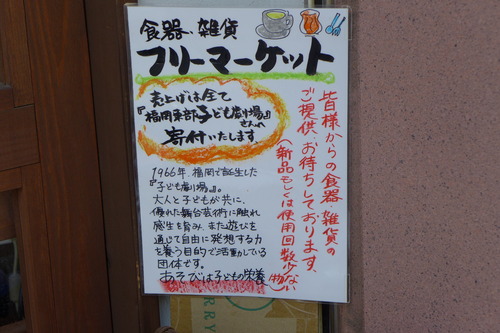 食器、雑貨
フリーマーケット
売上げは全て
『福岡東部子ども劇場』
さんへ
寄付いたします
皆様からの食器・雑貨の
ご提供、お待ちしております。
(新品もしくは使用回数少ない物)
1966年、福岡で誕生した
『子ども劇場』。
大人と子どもが共に、
優れた舞台芸術に触れ
感性を育み、また遊びを
通じて自由に発想する力
を養う目的で活動している
団体です。
あそびは子どもの栄養
RRY